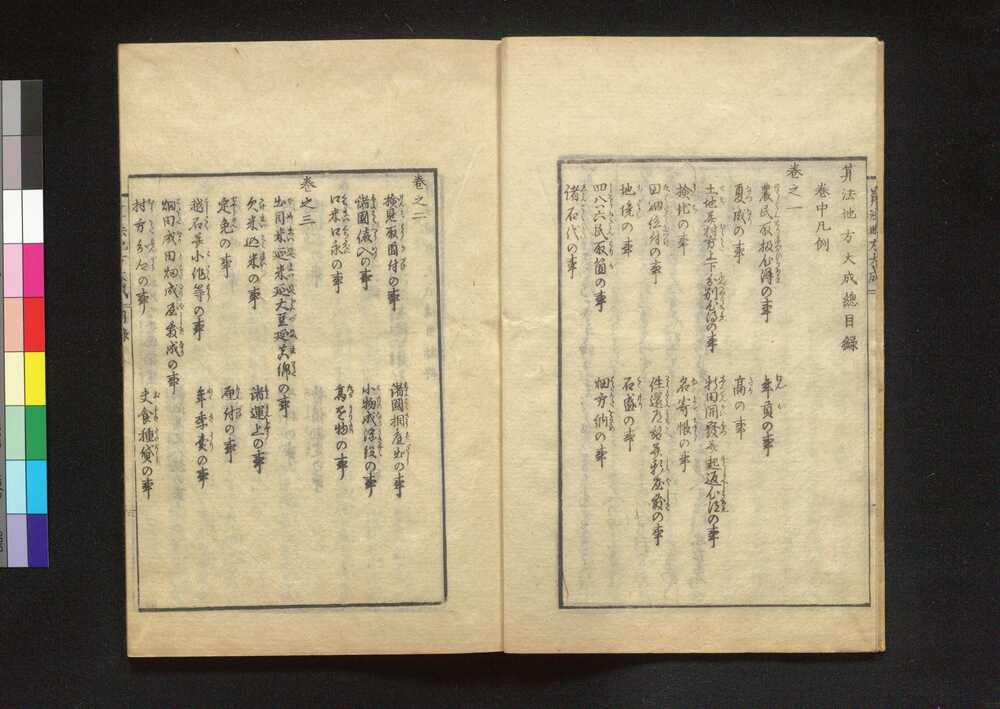 算法地方大成総目録
巻中凡例
巻之一
農民取扱心得の事
年貢の事
夏成の事
高の事
土地并村方上下分別心得の事
新田開発并起返心得の事
検地の事
名寄帳の事
田畑位付の事
地境の事
石盛の事
四公六民取箇の事
畑方納の事
諸石代の事
巻之二
検見取箇付の事
諸国相庭書の事
諸国俵入の事
小物成浮役の事
口米口永の事
高掛物の事
巻之三
出目米延米延大豆延真綿の事
欠米込米の事
諸運上の事
定免の事
厘付の事
越石并小作等の事
年季売の事
畑田成田畑成屋敷成の事
村方分ケの事
夫食種貸の事